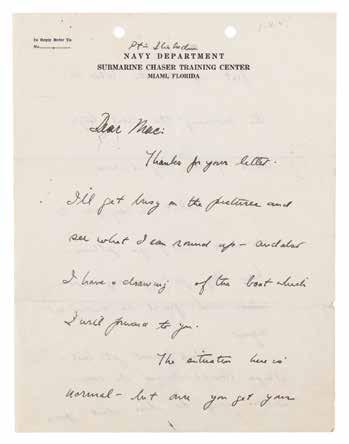 In Reply Refer To
No.
NAVY DEPARTMENT
SUBMARINE CHASER TRAINING CENTER
MIAMI, FLORIDA
Dear Mac:
Thanks for your letter.
I'll get busy on the pictures and
see what I can round up - and
I have a drawing of the boat which
I will forward to you.
The situation here is
normal - but once you get your